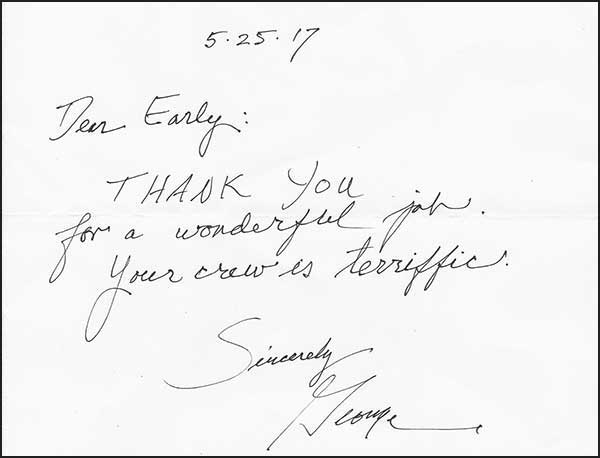 5.25.17
Dear Early:
THANK YOU
for a wonderful job.
Your crew is terriffic.
Sincerely
George